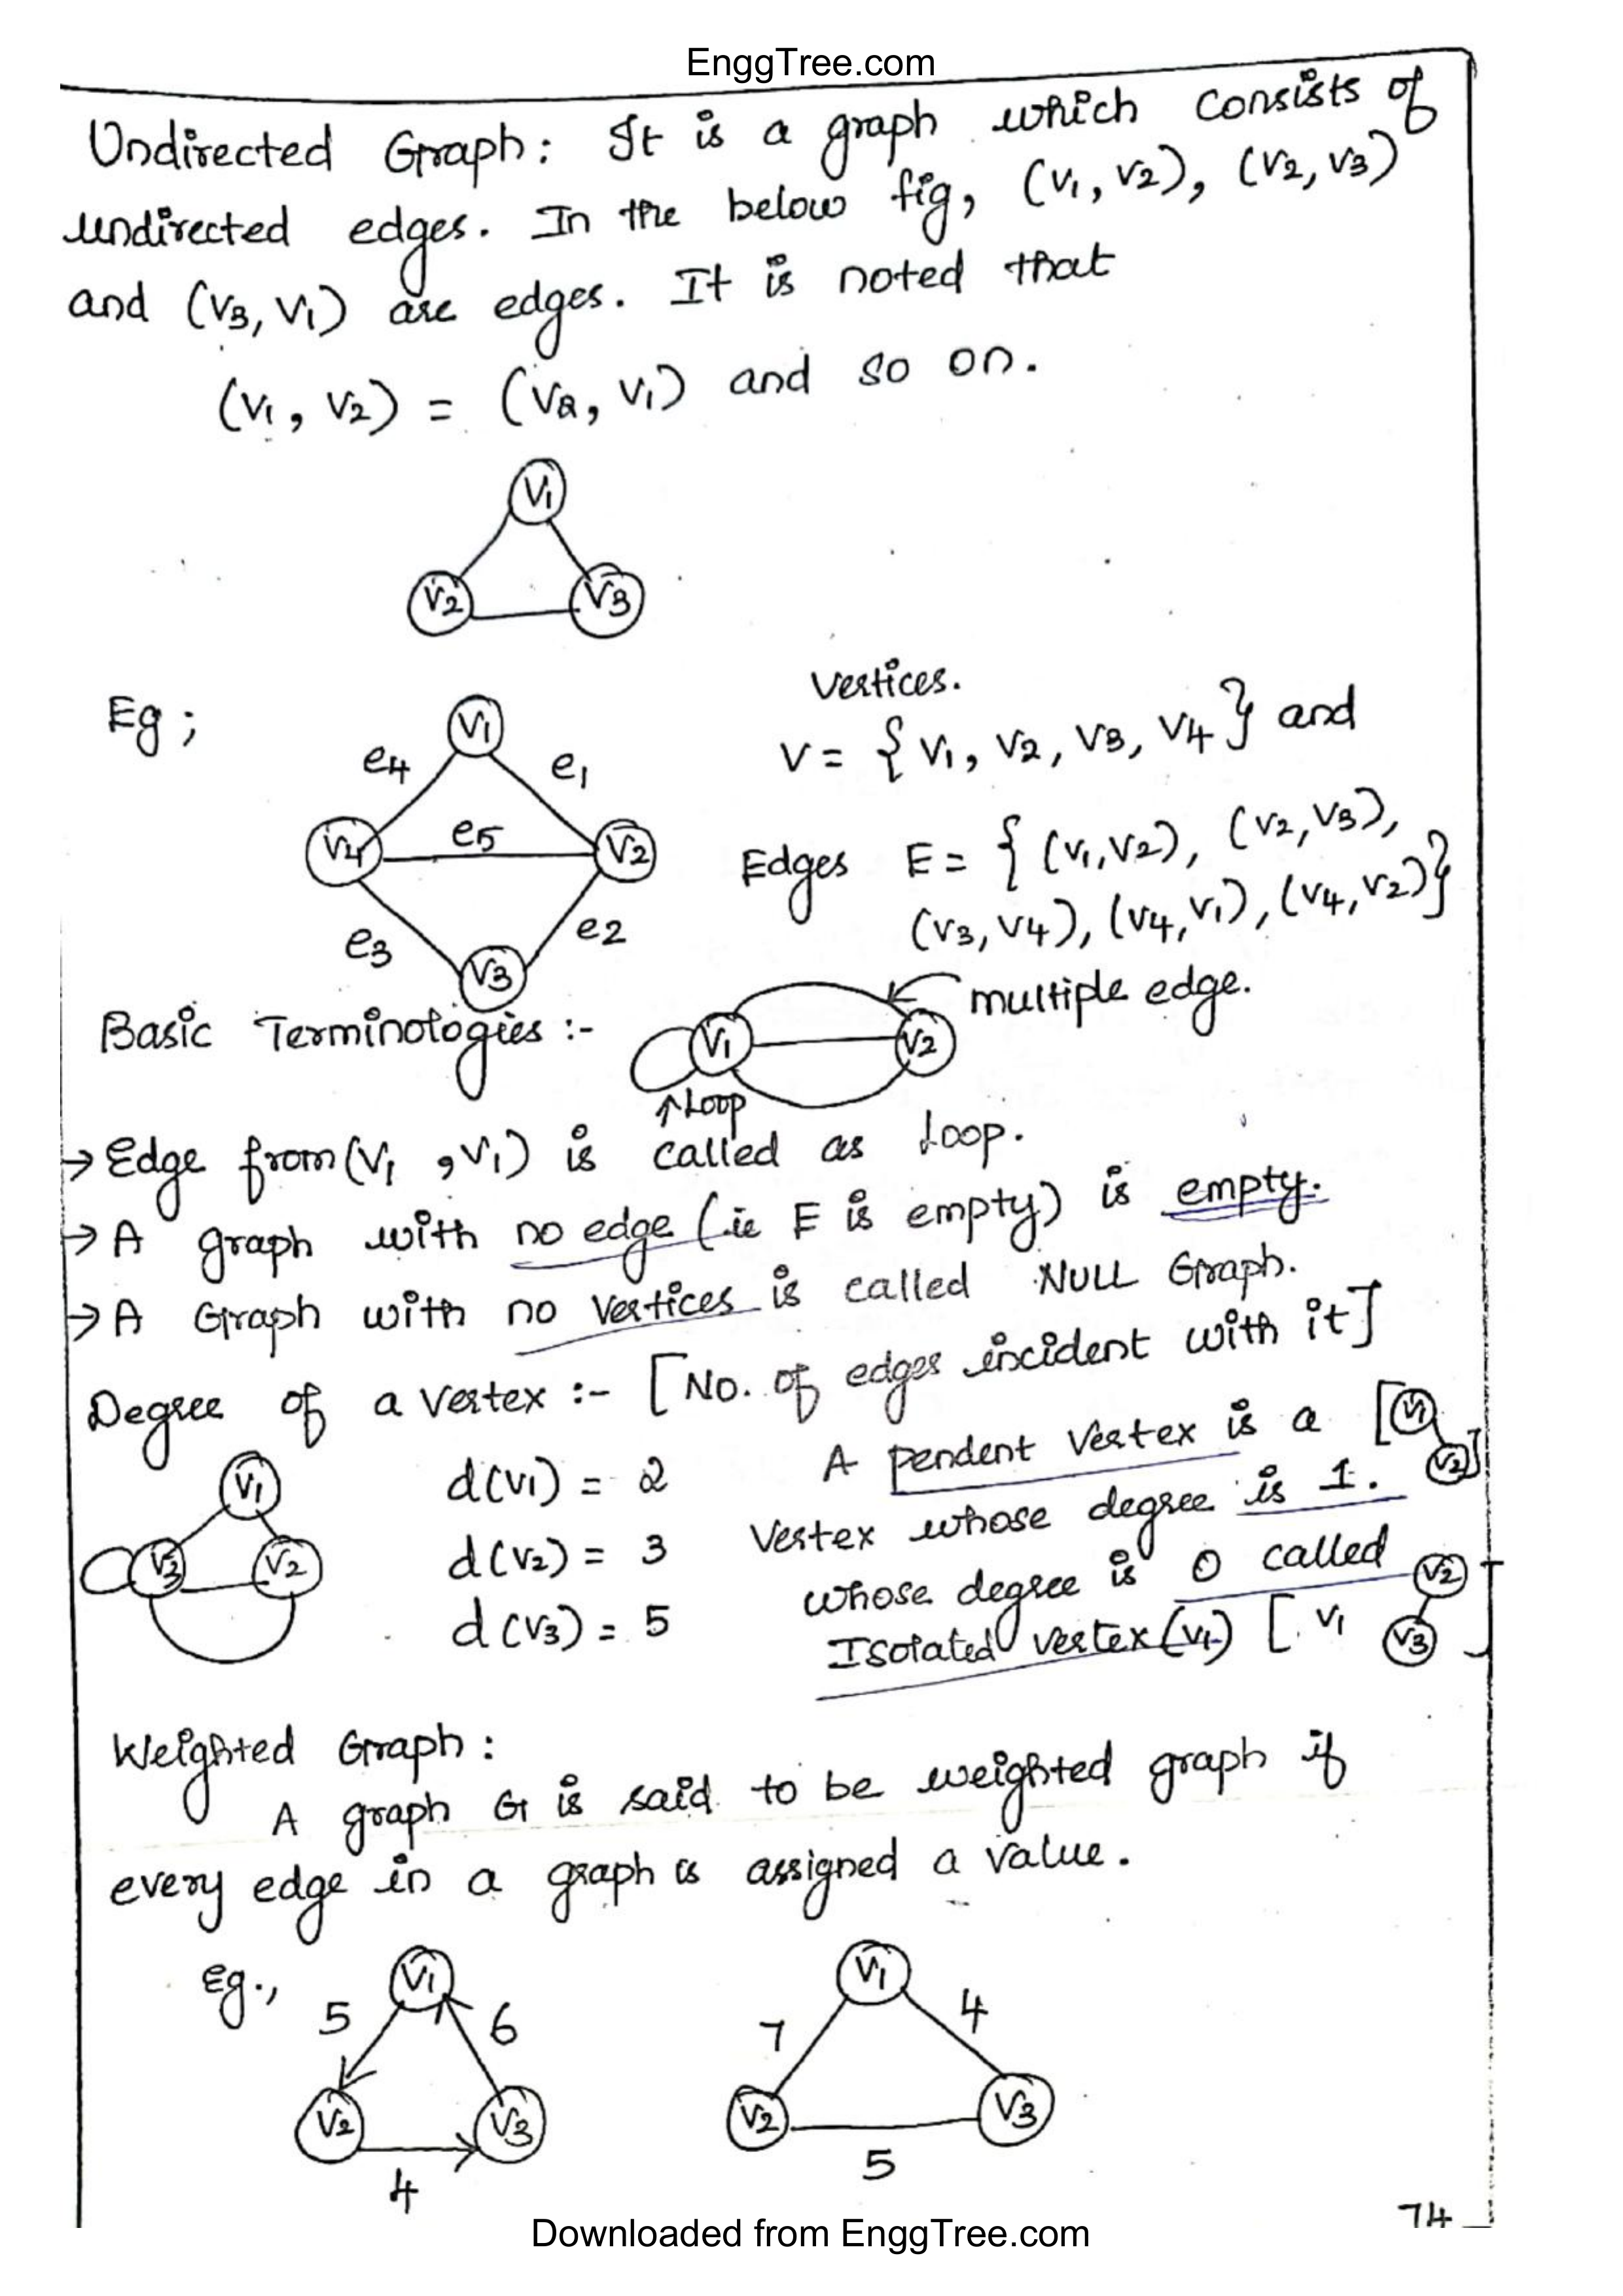 EnggTree.com
Undirected Graph: It is a graph which consists of
undirected edges. In the below fig, (V1, V2), (V2, V3)
and (V3, V1) are edges. It is noted that
(V1, V2) = (V2, V1) and so on.
V1
V2 V3
Eg;
Vertices.
V = { V1, V2, V3, V4 } and
Edges E = { (V1, V2), (V2, V3),
(V3, V4), (V4, V1), (V4, V2)}
V1
e4 e1
V4 e5 V2
e3 e2
V3
Basic Terminologies :-
V1 V2 multiple edge.
↑ Loop
→ Edge from (V1, V1) is called as Loop.
→ A graph with no edge (ie E is empty) is empty.
→ A Graph with no vertices is called NULL Graph.
Degree of a vertex :- [No. of edges incident with it]
V1
V3 V2
d(V1) = 2
d(V2) = 3
d(V3) = 5
A pendent Vertex is a [V1
Vertex whose degree is 1. V2]
whose degree is 0 called V2
Isolated vertex (V1) [. V1 V3 ]
Weighted Graph:
A graph G is said to be weighted graph if
every edge in a graph is assigned a value.
Eg.,
V1
5 6
V2 V3
4
V1
7 4
V2 V3
5
74
Downloaded from EnggTree.com